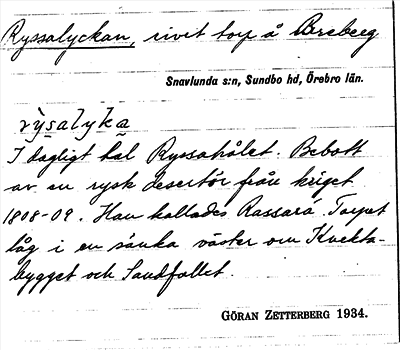 Ryssalyckan, rivet torp å Breberg
Snavlunda s:n, Sundbo hd, Örebro län.
rỳsalyka
I dagligt tal Ryssahålet. Bebott
av en rysk desertör från kriget
1808-09. Han kallades Rassarå. Torpet
låg i en sänka väster om Kvekta-
bygget och Sandfallet.
GÖRAN ZETTERBERG 1934.